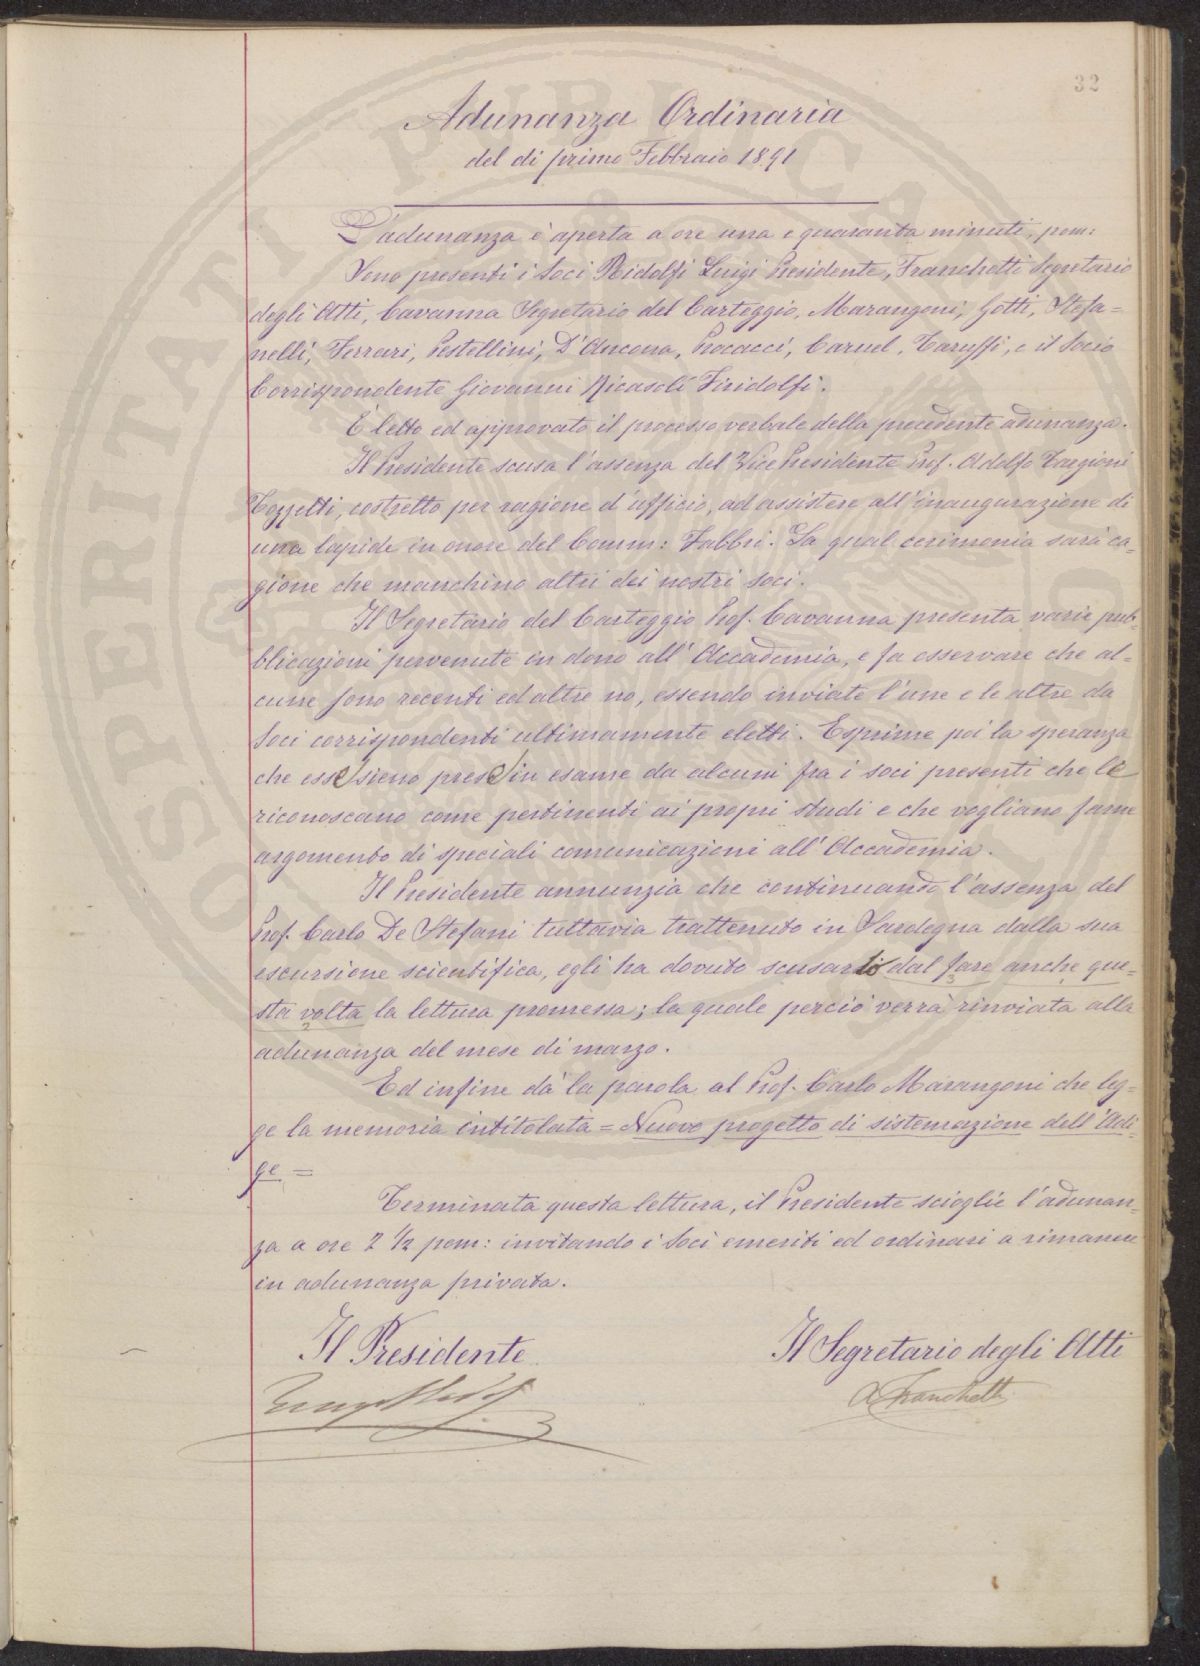 32
Adunanza Ordinaria
del di primo Febbraio 1891
L'adunanza è aperta a ore una e quaranta minuti, pom:
Sono presenti i Soci Ridolfi Luigi Presidente, Franchetti Segretario
degli Atti, Cavanna Segretario del Carteggio, Marangoni, Gotti, Stefa=
nelli, Ferrari, Pestellini, D'Ancona, Procacci, Caruel, Taruffi, e il Socio
Corrispondente Giovanni Ricasoli Firidolfi.
È letto ed approvato il processo verbale della precedente adunanza.
Il Presidente scusa l'assenza del Vice Presidente Prof. Adolfo Targioni
Tozzetti, costretto per ragione d'ufficio, ad assistere all'inaugurazione di
una lapide in onore del Comm: Fabbri. La qual cerimonia sarà ca-
gione che manchino altri dei nostri soci.
Il Segretario del Carteggio Prof. Cavanna presenta varie pub-
blicazioni pervenute in dono all'Accademia, e fa osservare che al=
cune sono recenti ed altre no, essendo inviate l'une e le altre da
Soci corrispondenti ultimamente eletti. Esprime poi la speranza
che esse sieno prese in esame da alcuni fra i soci presenti che le
riconoscano come pertinenti ai propri studi e che vogliano farne
argomento di speciali comunicazioni all'Accademia.
Il Presidente annunzia che continuando l'assenza del
Prof. Carlo De Stefani tuttavia trattenuto in Sardegna dalla sua
escursione scientifica, egli ha dovuto scusarlo dal fare anche que=
sta volta la lettura promessa; la quale perciò verrà rinviata alla
adunanza del mese di marzo.
Ed infine dà la parola al Prof. Carlo Marangoni che leg=
ge la memoria intitolata = Nuovo progetto di sistemazione dell'Adi-
ge =
Terminata questa lettura, il Presidente scioglie l'adunan=
za a ore 2 1/2 pom: invitando i Soci emeriti ed ordinari a rimanere
in adunanza privata.
Il Presidente Il Segretario degli Atti
A Franchetti
PROSPERITATI PUBLICAE